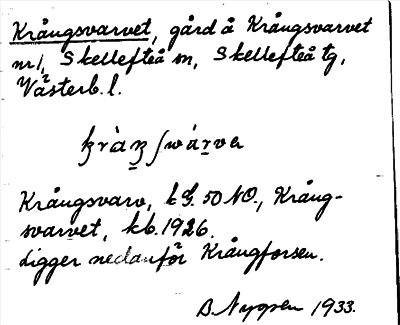 Krångsvarvet, gård å Krångsvarvet
nr 1, Skellefteå sn, Skellefteå tg,
Västerb. l.
Krångsvarv, k G. 50 NO., Krång-
svarvet, kb. 1926.
Ligger nedanför Krångforsen.
B. Nygren 1933.